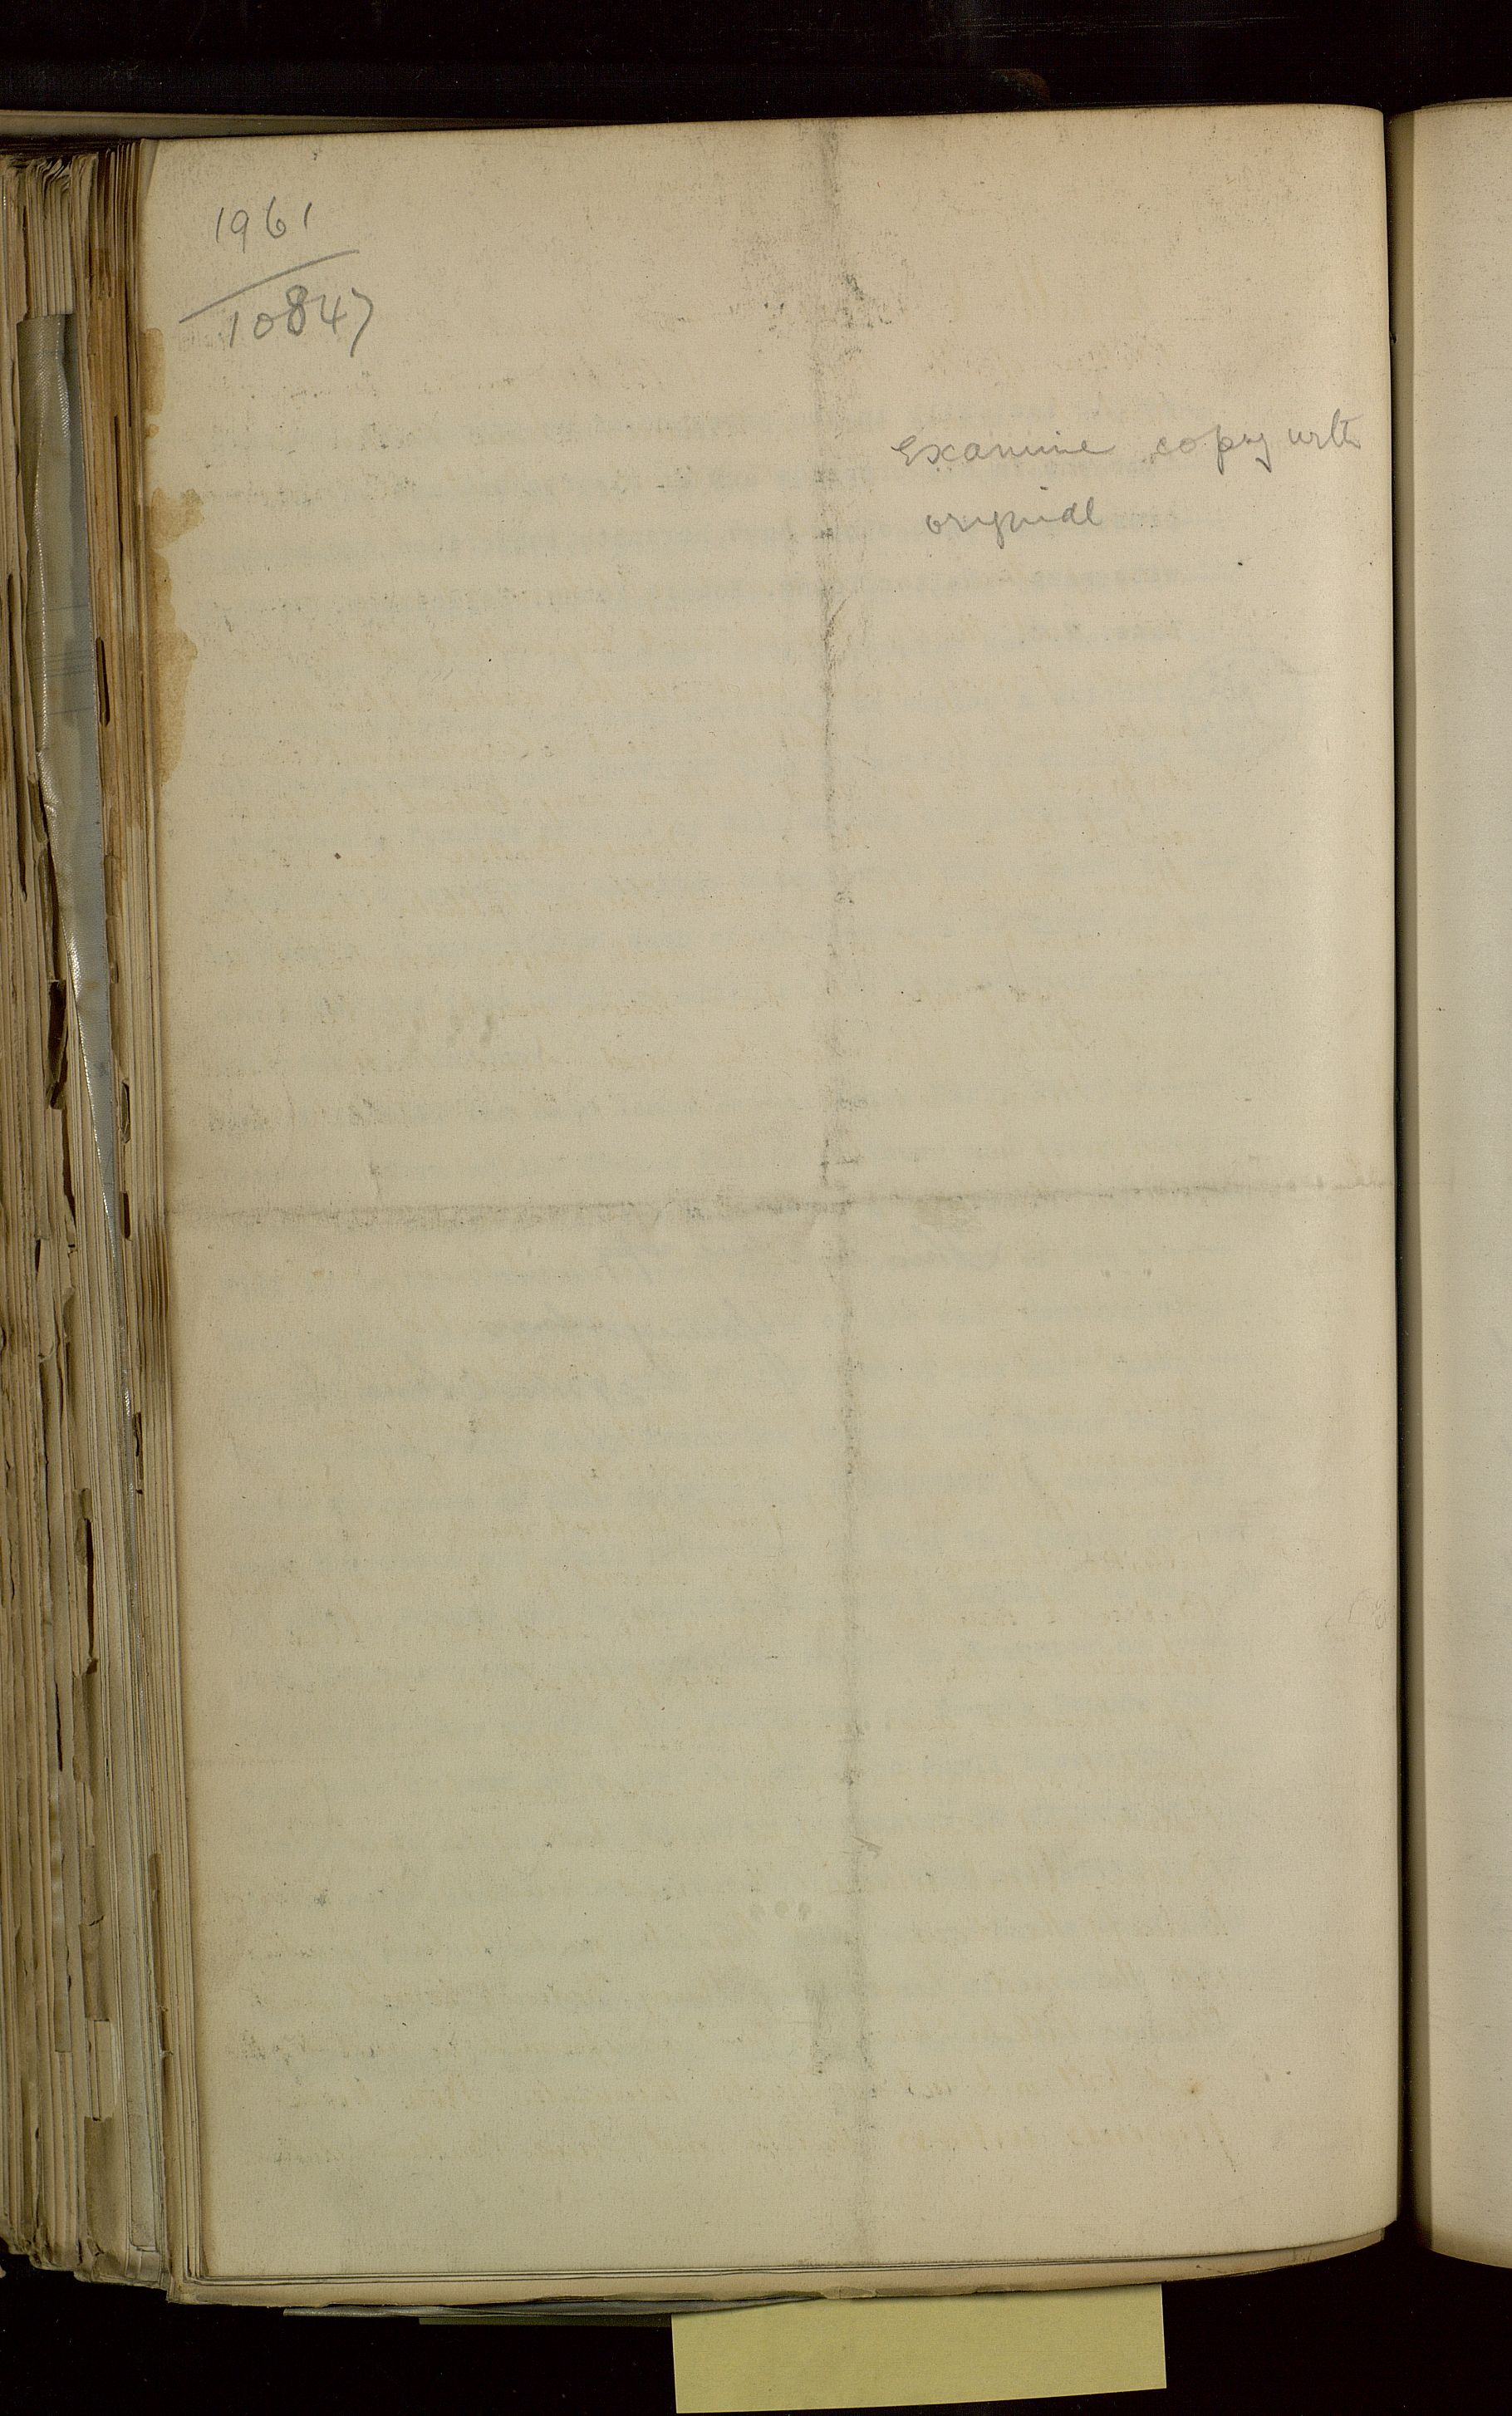 1961
10847
Examine copy with
original